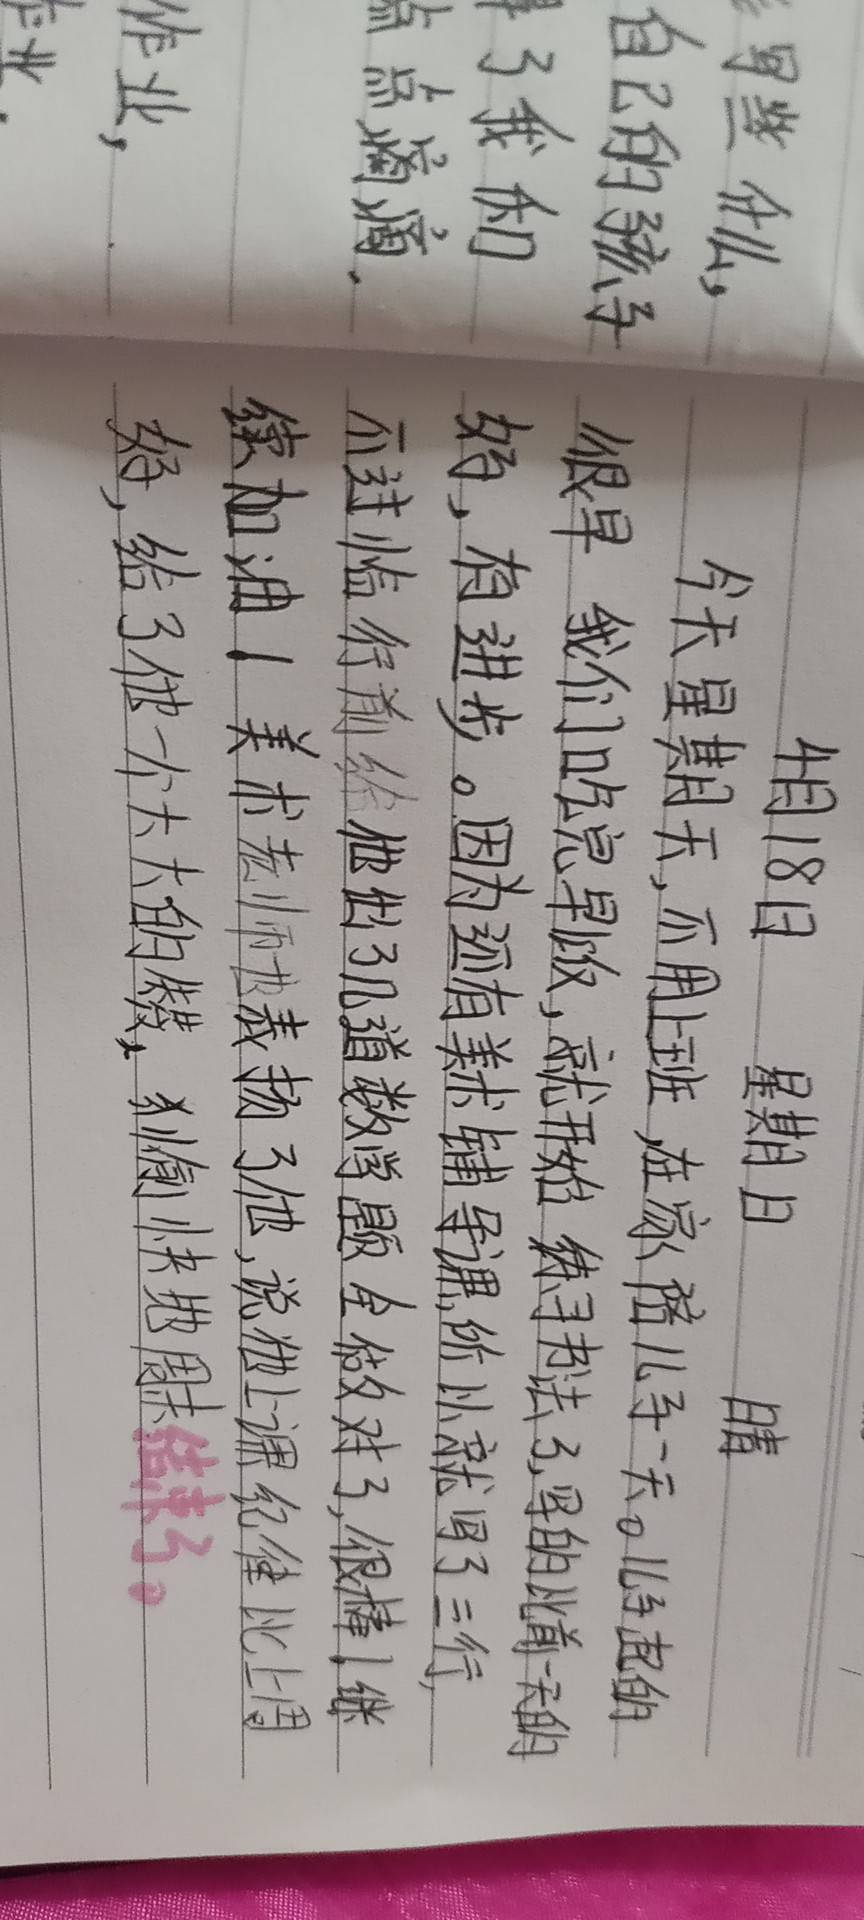 写些什么,
自己的孩子
了我们
点点滴滴.
作业,
作业.
4月18日 星期日 晴
今天星期天,不用上班,在家陪儿子一天。儿子起的
很早 我们吃完早饭,就开始练习书法了,写的比前一天的
好,有进步。因为还有美术辅导课,所以就写了二行,
不过临行前给他出了几道数学题全做对了,很棒!继
续加油!美术老师也表扬了他,说他上课纪律比上周
好,给了他一个大大的赞,愉快地周末结束了。